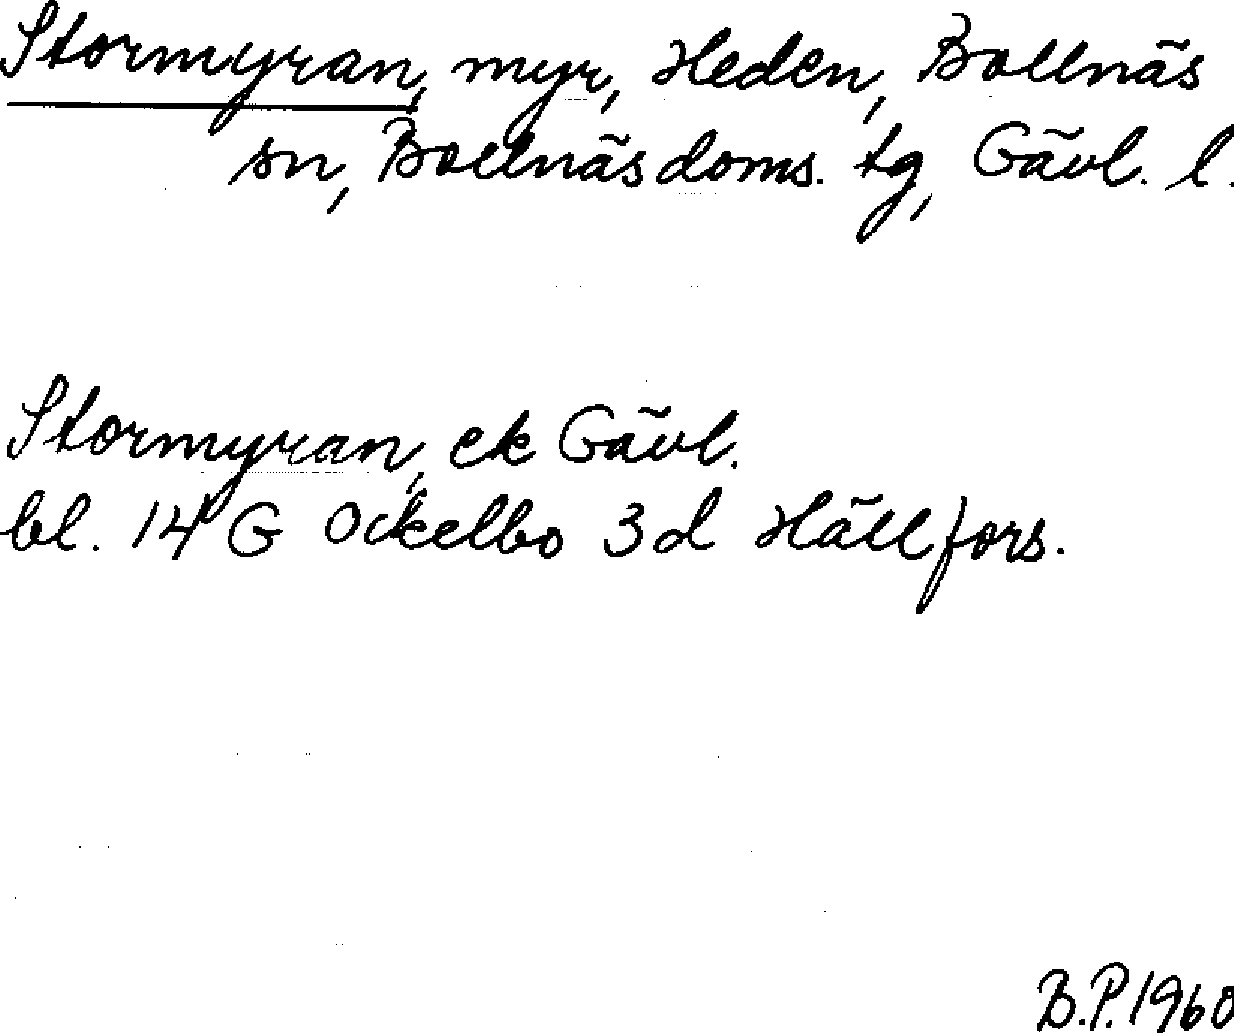 Stormyran, myr, Heden, Bollnäs
sn, Bollnäs doms. tg, Gävl. l.
Stormyran, ek Gävl.
bl. 14 G Ockelbo 3d Hällfors.
B.P. 1960